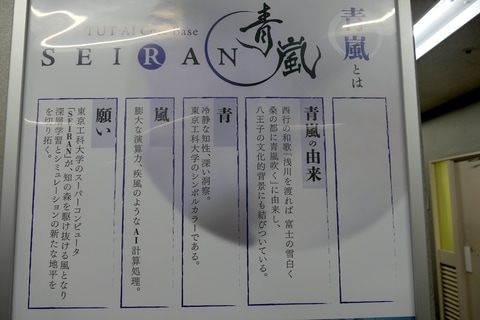 TUT AI Cre Base
SEIRAN
青嵐
青嵐とは
青嵐の由来
西行の和歌「浅川を渡れば 富士の雪白く
桑の都に青嵐吹く」に由来し、
八王子の文化的背景にも結びついている。
青
冷静な知性、深い洞察。
東京工科大学のシンボルカラーである。
嵐
膨大な演算力、疾風のようなAI計算処理。
願い
東京工科大学のスーパーコンピュータ
「SEIRAN」が、知の森を駆け抜ける風となり
深層学習とシミュレーションの新たな地平を
を切り拓く。